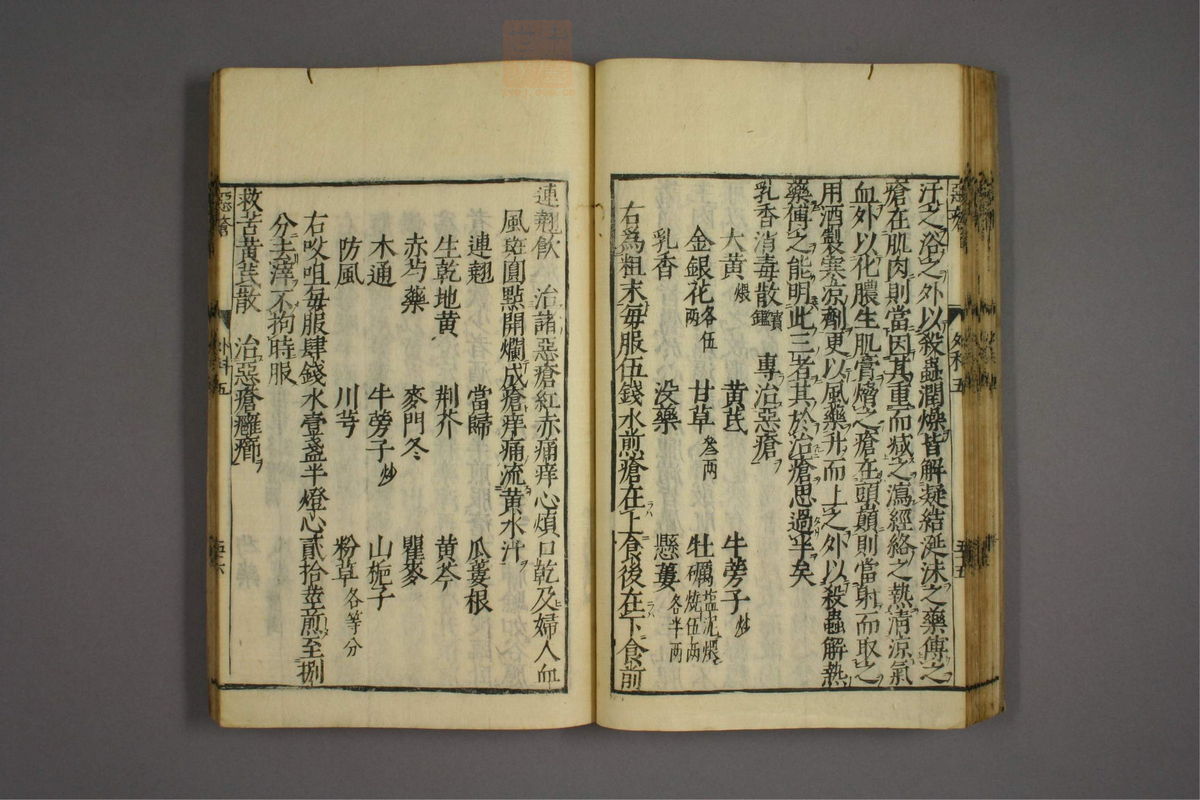 惡瘡 外科五 五五
汗之浴之外以殺蟲潤燥皆解凝結涎沫之藥傅之
瘡在肌肉則當因其重而減之瀉經絡之熱清涼氣
血外以化膿生肌膏熁之瘡在頭巔則當射而取之
用酒製寒涼劑更以風藥升而上之外以殺蟲解熱
藥傅之能明此三者其於治瘡思過半矣
乳香消毒散寶鑑 專治惡瘡
大黃煨 黃芪 牛蒡子炒
金銀花各伍兩 甘草叄兩 牡礪塩泥煨燒伍兩
乳香 没藥 懸蔞各半兩
右爲粗末每服伍錢水煎瘡在上食後在下食前
連翹飲 治諸惡瘡紅赤痛痒心煩口乾及婦人血
風斑圓點開爛成瘡痒痛流黃水汁
連翹 當歸 瓜蔞根
生乾地黃 荆芥 黃芩
赤芍藥 麥門冬 瞿麥
木通 牛蒡子炒 山梔子
防風 川芎 粉草各等分
右㕮咀每服肆錢水壹盞半燈心貳拾莖煎至捌
分去滓不拘時服
救苦黃芪散 治惡瘡癰癤
惡瘡 外科五 五六